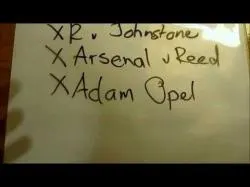 X R v Johnstone
X Arsenal v Reed
X Adam Opel